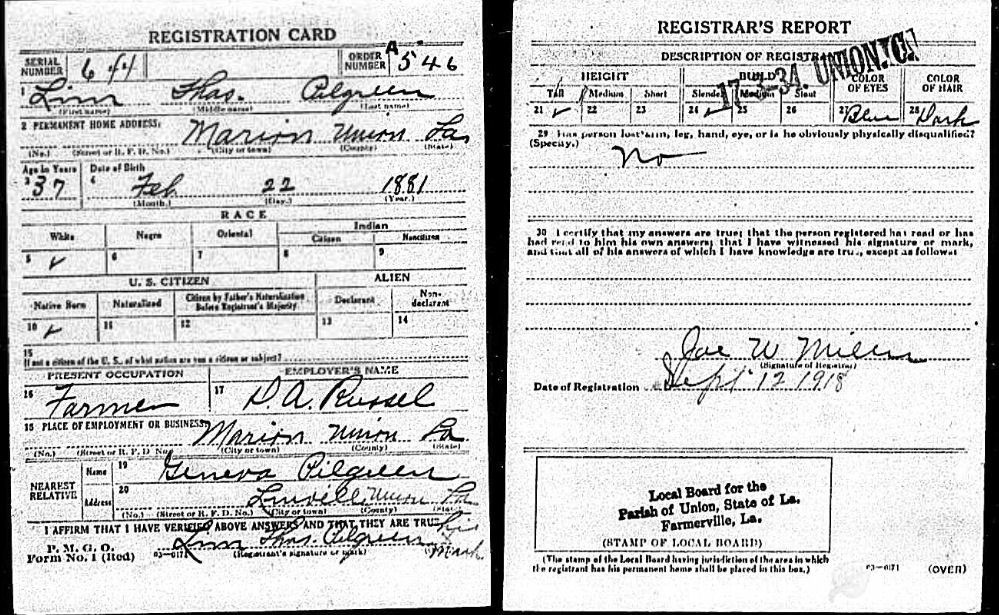 REGISTRATION CARD
SERIAL NUMBER 644
ORDER NUMBER A 546
1 Linn Thos. Pilgreen
(First name) (Middle name) (Last name)
2 PERMANENT HOME ADDRESS:
Marion Union La
(No.) (Street or R. F. D. No.) (City or town) (County) (State)
Age in Years Date of Birth
3 37 4 Feb 22 1881
(Month.) (Day.) (Year.)
RACE
White Negro Oriental Indian
Citizen Noncitizen
5 ✓ 6 7 8 9
U. S. CITIZEN ALIEN
Native Born Naturalized Citizen by Father's Naturalization Before Registrant's Majority Declarant Non-declarant
10 ✓ 11 12 13 14
15
If not a citizen of the U. S., of what nation are you a citizen or subject?
PRESENT OCCUPATION EMPLOYER'S NAME
16 Farmer 17 D. A. Russel
18 PLACE OF EMPLOYMENT OR BUSINESS:
Marion Union La
(No.) (Street or R. F. D. No.) (City or town) (County) (State)
NEAREST RELATIVE
Name 19 Geneva Pilgreen
Address 20 Linvill Union La
(No.) (Street or R. F. D. No.) (City or town) (County) (State)
I AFFIRM THAT I HAVE VERIFIED ABOVE ANSWERS AND THAT THEY ARE TRUE
P. M. G. O.
Form No. 1 (Red) 03—6171
Linn Thos. Pilgreen his X mark
(Registrant's signature or mark)
REGISTRAR'S REPORT
DESCRIPTION OF REGISTRANT
17-3-34. UNION.
HEIGHT BUILD COLOR OF EYES COLOR OF HAIR
Tall Medium Short Slender Medium Stout
21 ✓ 22 23 24 ✓ 25 26 27 Blue 28 Dark
29 Has person lost arm, leg, hand, eye, or is he obviously physically disqualified?
(Specify.)
No
30 I certify that my answers are true; that the person registered has read or has
had read to him his own answers; that I have witnessed his signature or mark,
and that all of his answers of which I have knowledge are true, except as follows:
Joe W
(Signature of Registrar)
Date of Registration Sept 12 1918
Local Board for the
Parish of Union, State of La.
Farmerville, La.
(STAMP OF LOCAL BOARD)
(The stamp of the Local Board having jurisdiction of the area in which
the registrant has his permanent home shall be placed in this box.)
03—6171 (OVER)